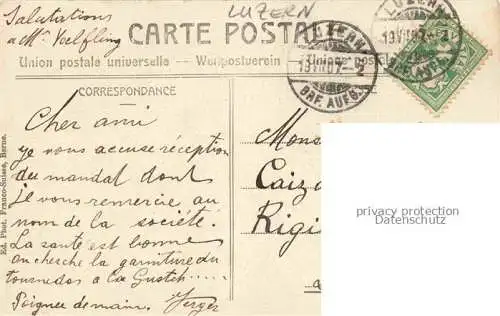 Salutations
a Mr. Voelfling
LUZERN
CARTE POSTAL
Union postale universelle. — Weltpostverein — Unione postale
LUZERN
19.VII.07.-2
BRF. AUFG.
LUZERN
19.VII.07.-2
BRF. AUFG.
CORRESPONDANCE
Cher ami
je vous accuse réception
du mandat dont
je vous remercie au
nom de la société.
La santé est bonne
on cherche la garniture du
tournedos a la Gusteh.....
Poignée de main. Jerger
Ed. Phot. Franco-Suisse, Berne.
Mons
Caiz
Rigi
a
privacy protection
Datenschutz